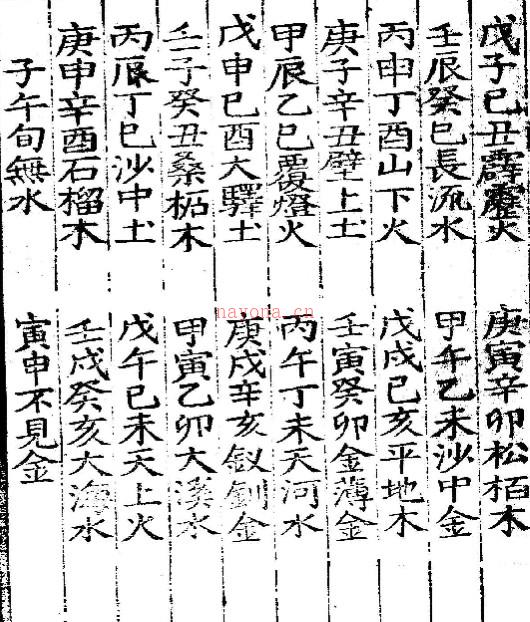 戊子己丑霹靂火 庚寅辛卯松栢木
壬辰癸巳長流水 甲午乙未沙中金
丙申丁酉山下火 戊戌己亥平地木
庚子辛丑壁上土 壬寅癸卯金薄金
甲辰乙巳覆燈火 丙午丁未天河水
戊申己酉大驛土 庚戌辛亥釵釧金
壬子癸丑桑柘木 甲寅乙卯大溪水
丙辰丁巳沙中土 戊午己未天上火
庚申辛酉石榴木 壬戌癸亥大海水
子午旬無水 寅申不見金
nayona.cn